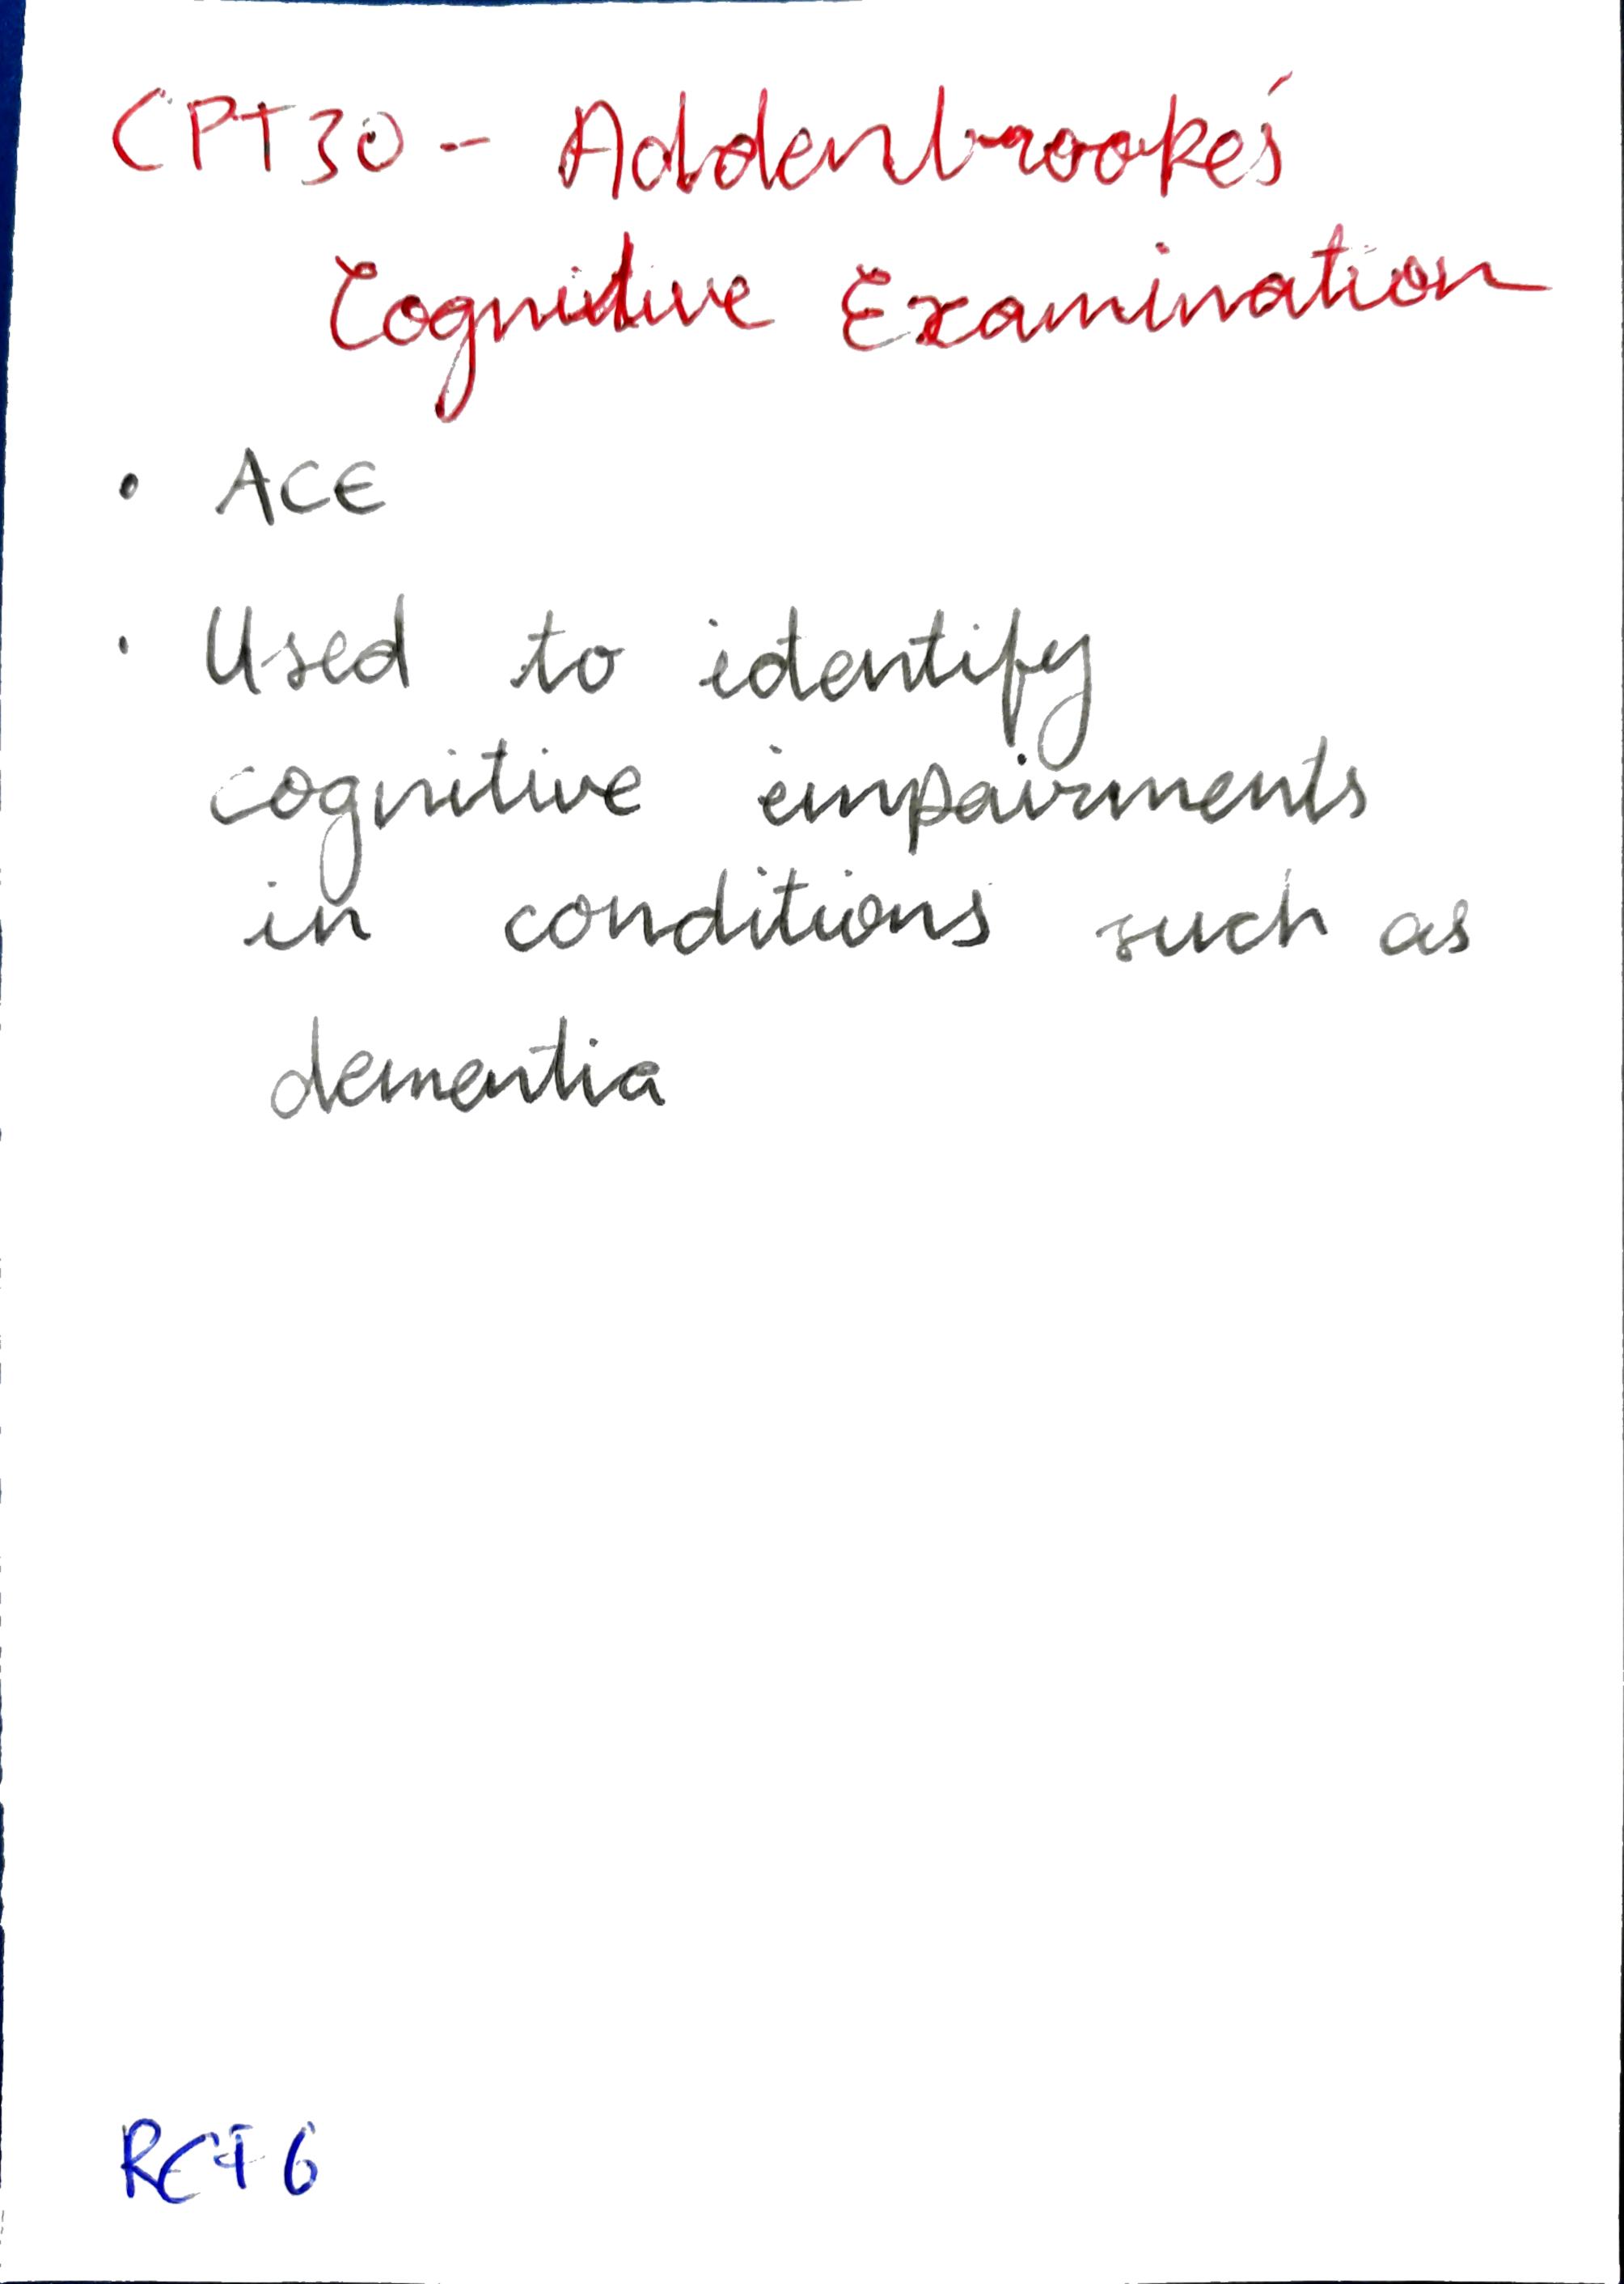 CPT30 - Addenbrooke's
Cognitive Examination
• ACE
• Used to identify
cognitive impairments
in conditions such as
dementia
RCT6